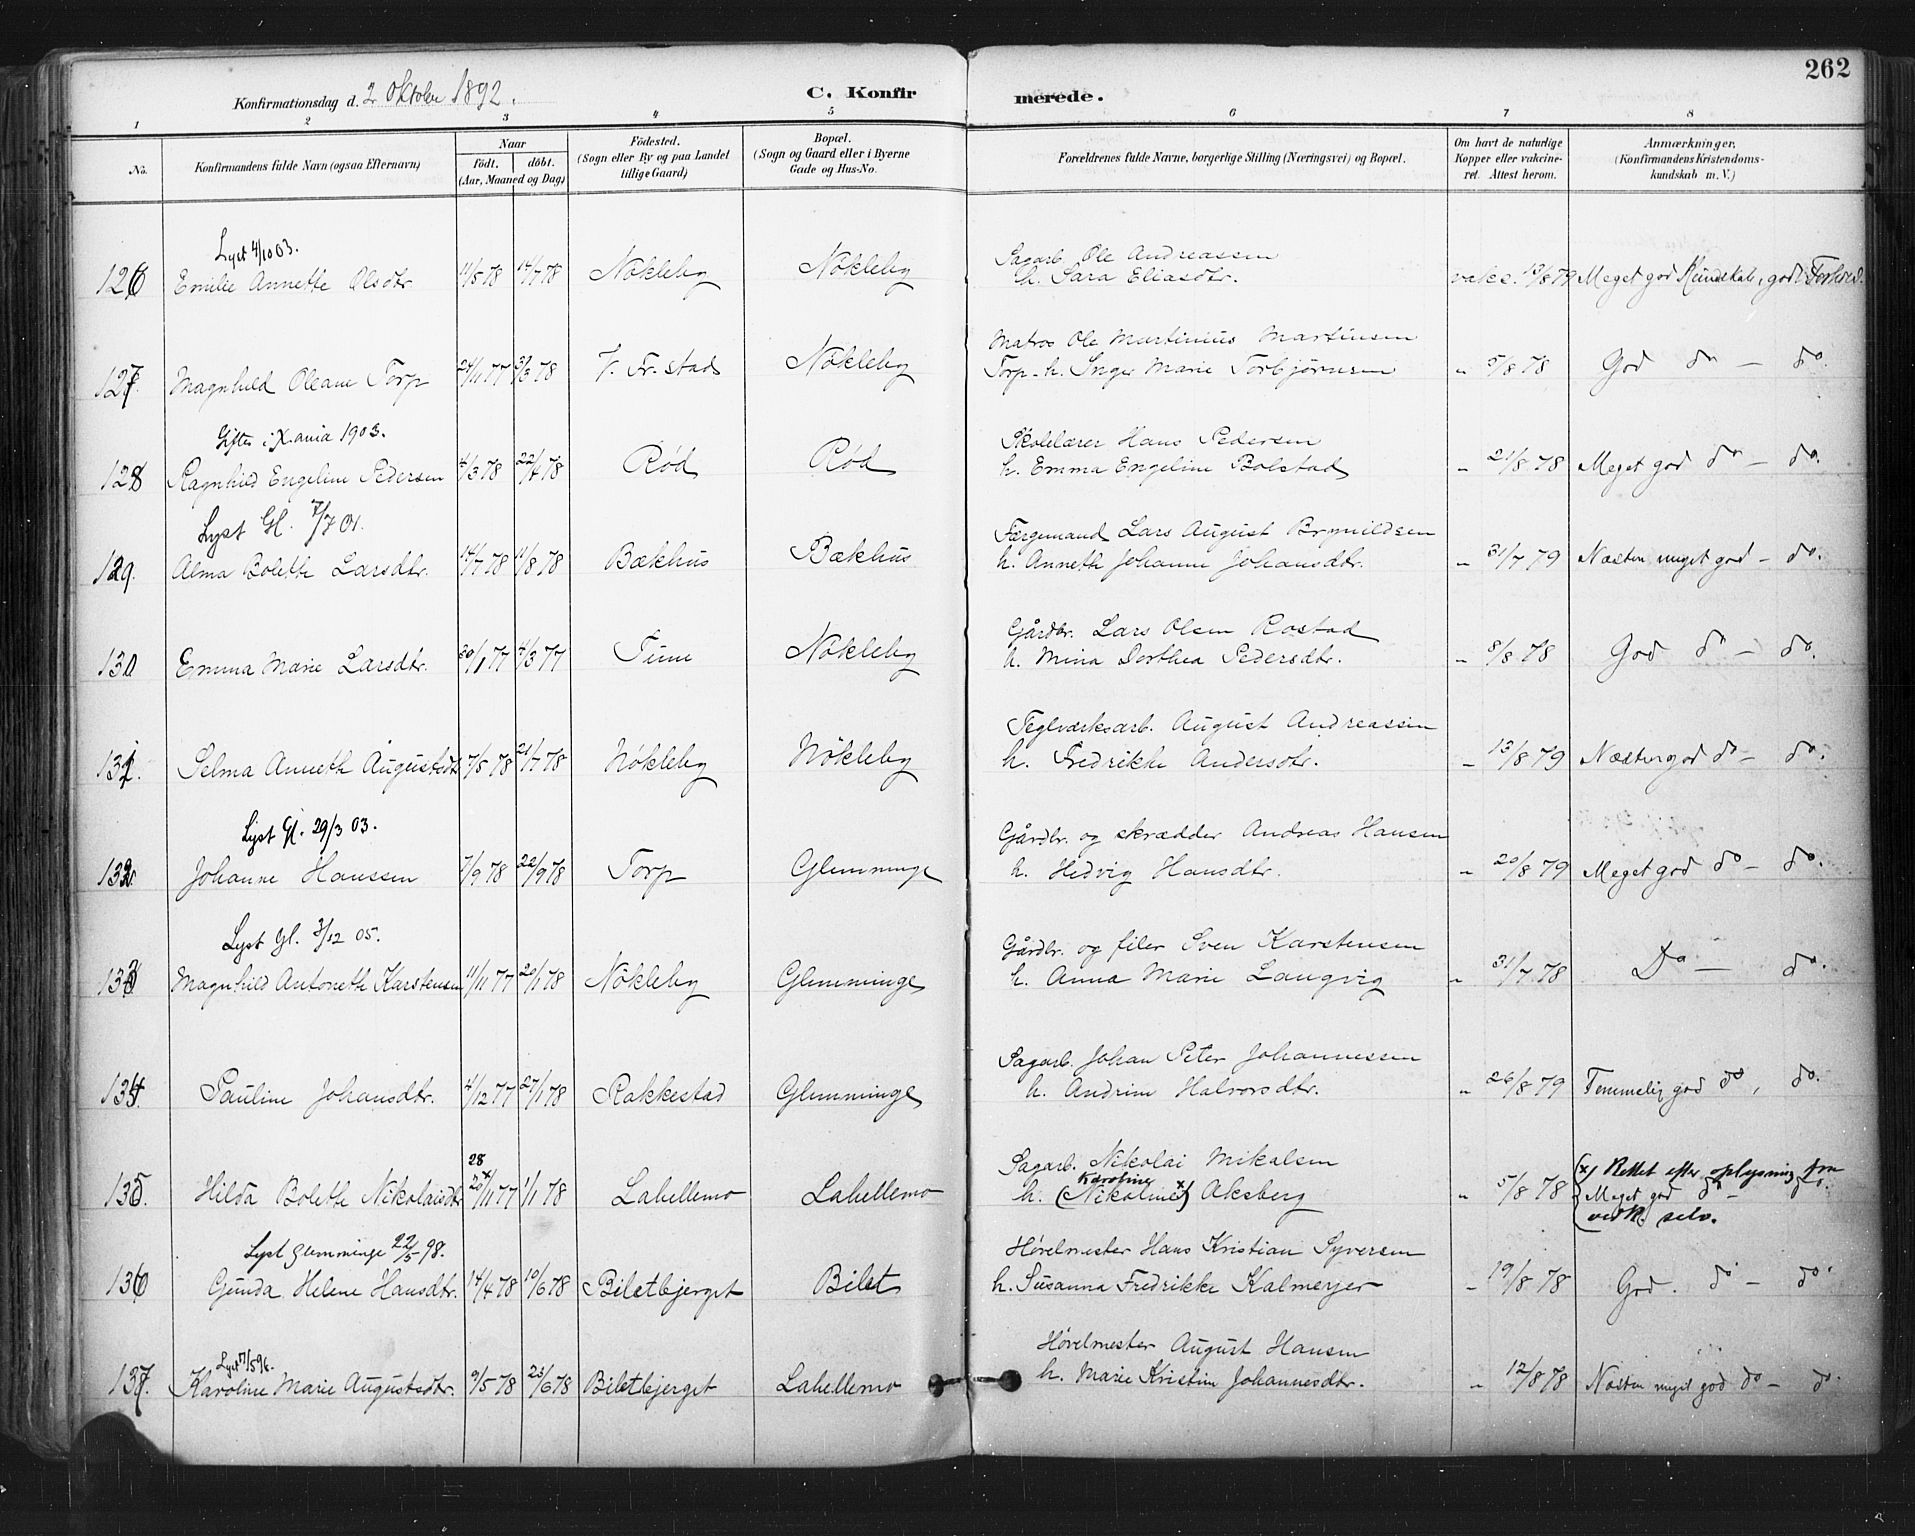 262
Konfirmationsdag d. 2 Oktober 1892.
C. Konfirmerede.
1 2 3 4 5 6 7 8
No. Konfirmandens fulde Navn (ogsaa Efternavn) Naar født. døbt. (Aar, Maaned og Dag) Fødested. (Sogn eller By og paa Landet tillige Gaard) Bopæl. (Sogn og Gaard eller i Byerne Gade og Hus-No. Forældrenes fulde Navne, borgerlige Stilling (Næringsvei) og Bopæl. Om havt de naturlige Kopper eller vakcineret. Attest herom. Anmærkninger. (Konfirmandens Kristendomskundskab m. V.)
Lyst 4/10 03.
Sagarb. Ole Andreassen
126 Emilie Annette Olsdtr 11/5 78 14/7 78 Nökleby Nökleby h. Sara Eliasdtr. vakc. 13/8 79 Meget god Kundskab, god Forhold.
Matros Ole Martinius Martinsen
127. Magnhild Oleane Torp 24/11 77 3/3 78 V. Fr.stad Nökleby Torp - h. Inger Marie Torbjørnsen " 5/8 78 God do — do.
Gift i X.ania 1903.
Skolelærer Hans Pedersen
128 Ragnhild Engeline Pedersen 4/3 78 22/4 78 Rød Rød h. Emma Engeline Bolstad " 21/8 78 Meget god do — do.
Lyst Gl. 7/7 01.
Færgemand Lars August Brynildsen
129. Alma Bolette Larsdtr. 14/7 78 11/8 78 Bækhus Bækhus h. Anneth Johanne Johansdtr. " 31/7 79 Næsten meget god — do.
Gårdbr. Lars Olsen Rostad
130 Emma Marie Larsdtr. 30/1 77 4/3 77 Tune Nökleby h. Mina Dorthea Pedersdtr. " 8/8 78 God do — do.
Teglværksarb. August Andreassen
131. Selma Anneth Augustsdtr 7/5 78 21/7 78 Nökleby Nökleby h. Fredrikke Andersdtr. " 13/8 79 Næsten god do — do.
Lyst Gl. 29/3 03.
Gårdbr. og skrædder Andreas Hansen
132. Johanne Hanssen 7/9 78 22/9 78 Torp Glemminge h. Hedvig Hansdtr. " 20/8 79 Meget god do — do.
Lyst Gl. 3/12 05.
Gårdbr. og filer Sven Karstensen
133 Magnhild Antoneth Karstensen 11/11 77 20/1 78 Nökleby Glemminge h. Anna Marie Langvig " 31/7 78 Do — do.
Sagarb. Johan Peter Johannessen
134. Pauline Johansdtr. 4/12 77 27/1 78 Rakkestad Glemminge h. Andrine Halvorsdtr. " 26/8 79 Temmelig god do, do.
28
Sagarb. Nikolai Mikalsen (x) Rettet efter oplysning fra
Karoline
135. Hilda Bolette Nikolaisdtr 20x/11 77 1/1 78 Lahellemo Lahellemo h. (Nikoline x) Aksberg " 5/8 78 Meget god do — do.
vedk. selv.
Lyst Glemminge 22/5 98.
Høvelmester Hans Kristian Syversen
136 Gunda Helene Hansdtr. 14/4 78 10/6 78 Biletbjerget Bilet h. Susanna Fredrikke Kalmeyer " 19/8 78 God. do — do.
Høvelmester August Hansen
137. Karoline Marie Augustsdtr. 9/5 78 23/6 78 Biletbjerget Lahellemo h. Marie Kristine Johannesdtr. " 12/8 78 Næsten meget god do — do.